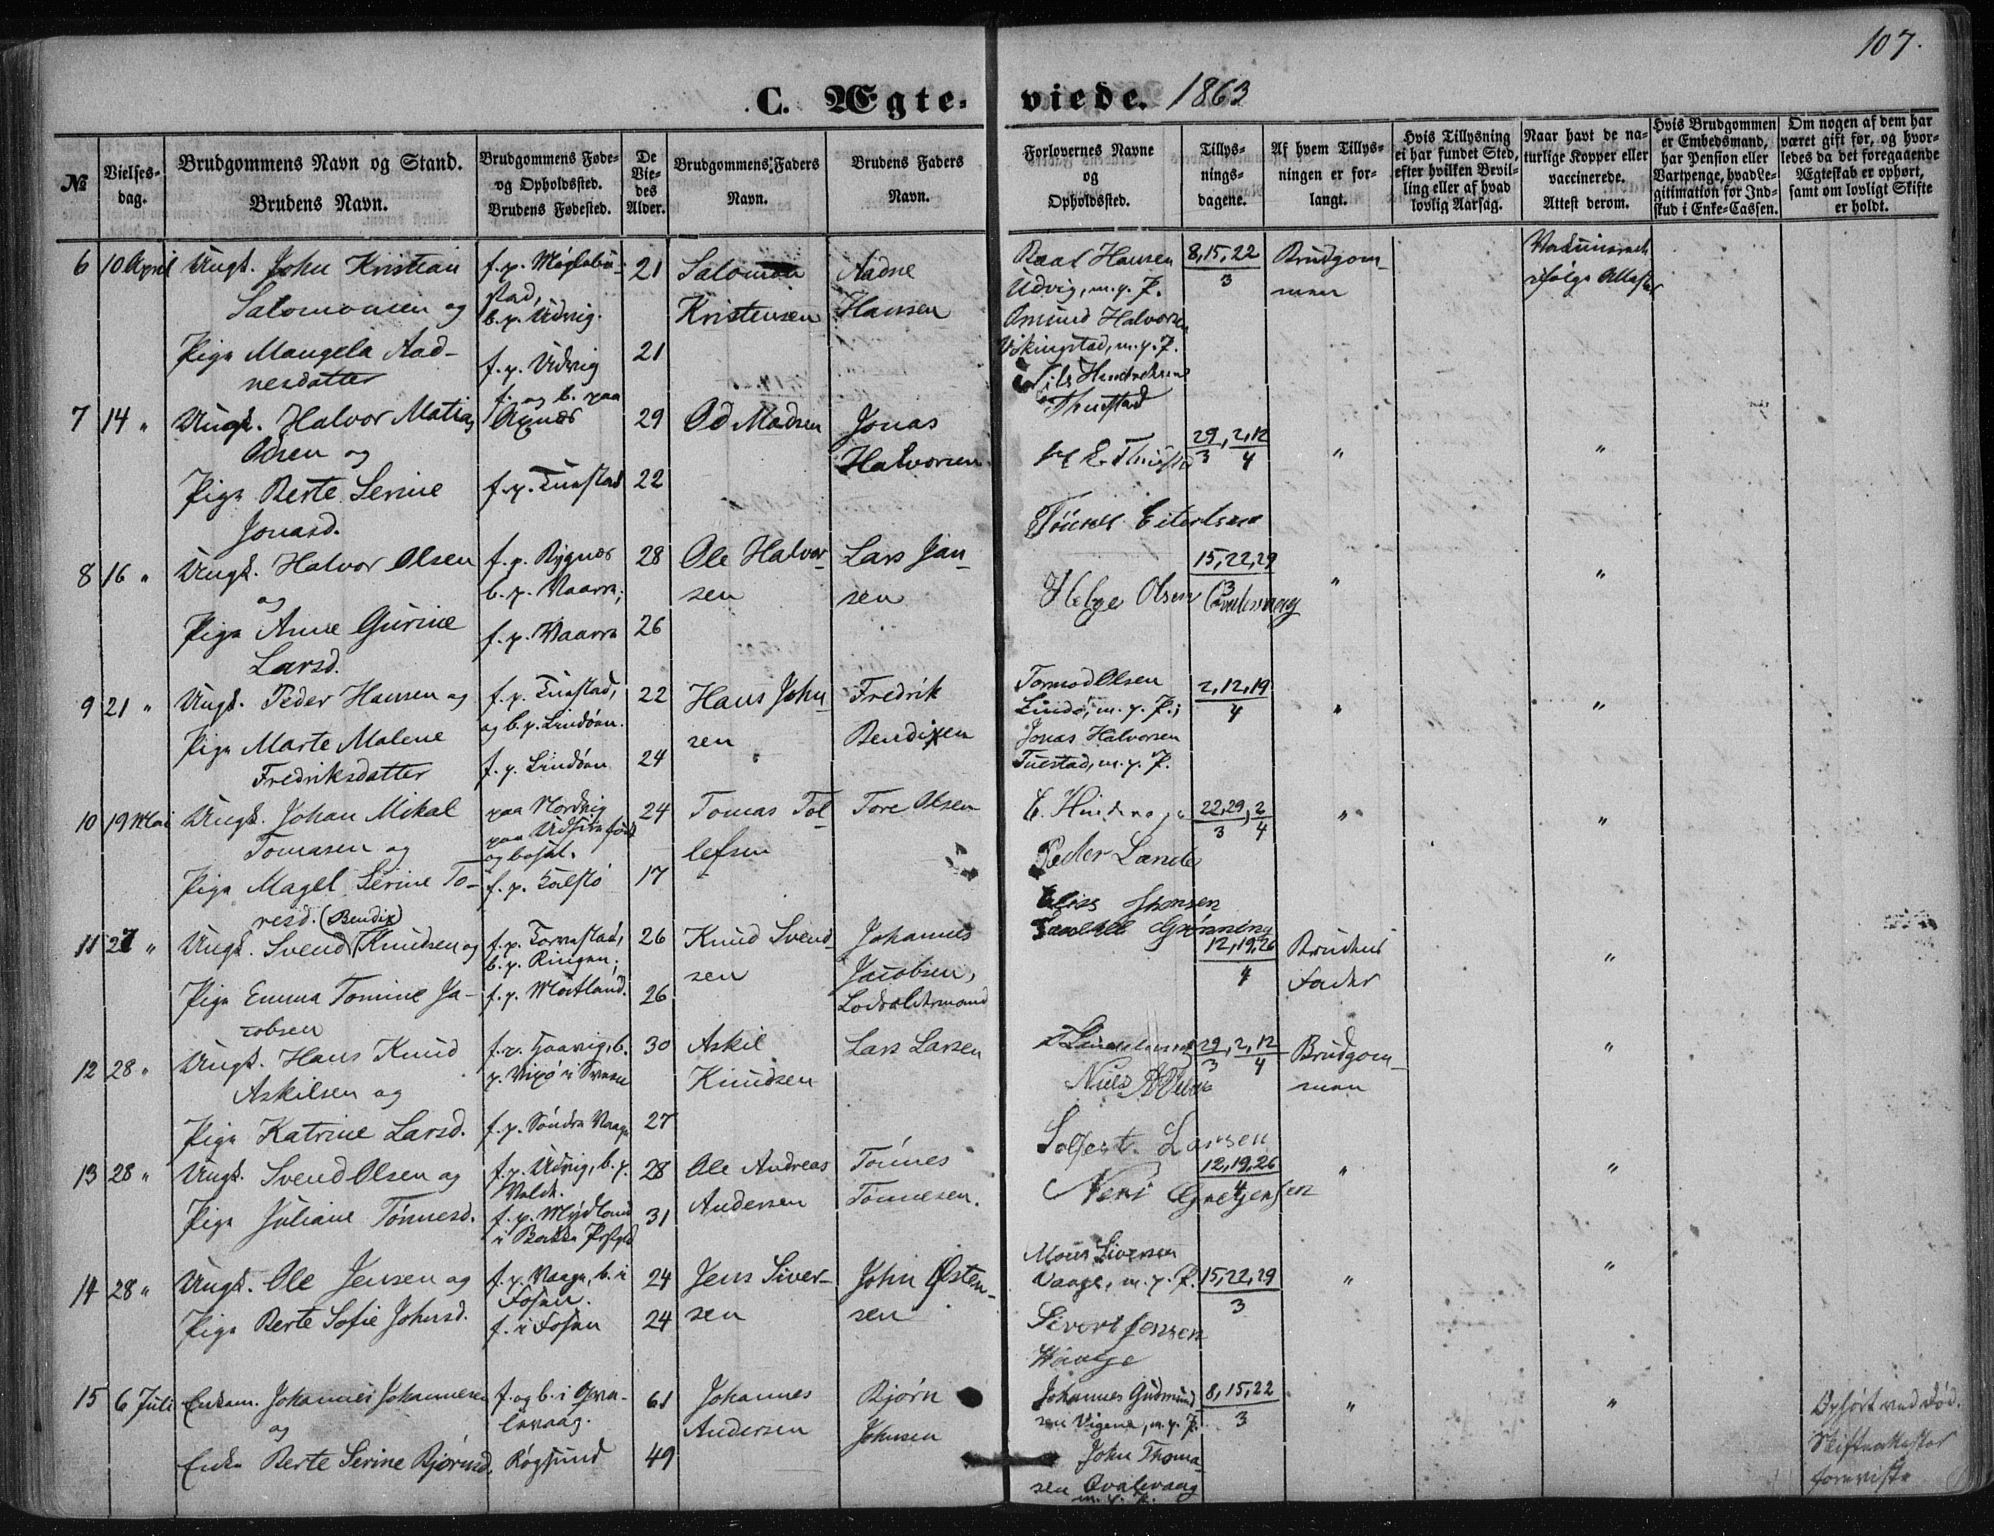 107.
C. Ægteviede. 1863
№
Vielsesdag.
Brudgommens Navn og Stand.
Brudens Navn.
Brudgommens Fødeog Opholdssted.
Brudens Fødested.
De Viedes Alder.
Brudgommens Faders Navn.
Brudens Faders Navn.
Forlovernes Navne og Opholdssted.
Tillysningsdagene.
Af hvem Tillysningen er forlangt.
Hvis Tillysning ei har fundet Sted, efter hvilken Bevilling eller af hvad lovlig Aarsag.
Naar havt de naturlige Kopper eller vaccinerede. Attest derom.
Hvis Brudgommen er Embedsmand, har Pension eller Vartpenge, hvad Legitimation for Indskud i Enke-Cassen.
Om nogen af dem har været gift før, og hvorledes da det foregaaende Ægteskab er ophørt, samt om lovligt Skifte er holdt.
6 10 April Ungk. John Kristian
Salomonsen og
Pige Mangela Aadnesdatter
b. p. Udvig.
f. p. Udvig
21
21
Salomon
Kristensen
Aadne
Hansen
Udvig, m. p. P.
Omund Halvorsen
Vikingstad, m. p. P.
8, 15, 22
3
Brudgommen
7 14 " Ungk. Halvor Matias
Odsen og
Pige Berte Serine
Jonasd.
f. og b. paa
29
22
Od Madsen
Jonas
Halvorsen
29/3, 2, 12/4
"
"
8 16 " Ungk. Halvor Olsen
og
Pige Anne Gurine
Larsd.
f. p. Rygnes
b. p. Vaarra;
f. p. Vaarra
28
26
Ole Halvorsen
Lars Jansen
Helge Olsen
15, 22, 29
3
"
"
9 21 " Ungk. Peder Hansen og
Pige Marte Malene
Fredriksdatter
f. p. Tuestad,
og b. p. Lindøen.
f. p. Lindøen
22
24
Hans Johnsen
Fredrik
Bendixen
Tormod Olsen
Lindø, m. p. P.;
Jonas Halvorsen
Tuestad, m. p. P.
2, 12, 19
4
"
"
10 19 Mai Ungk. Johan Mikal
Tomasen og
Pige Magel Serine Toresd.
paa Nordvig
og bosat.
f. p. Kalstø
24
17
Tomas Tollefsen
Tore Olsen
Peder Lande
22, 29/3, 2/4
"
"
11 27 " Ungk. Svend (Bendix) Knudsen og
Pige Emma Tomine Jacobsen
f. p. Torvestad,
b. p. Ringen;
f. p. Mostland.
26
26
Knud Svendsen
Johannes
Jacobsen,
Lodsoldermand
Elias Jensen
Grønning
12, 19, 26
4
Brudens
Fader
"
12 28 " Ungk. Hans Knud
Askilsen og
Pige Katrine Larsd.
f. p. Søndre Vaage
30
27
Askil
Knudsen
Lars Larsen
Niels
29/3, 2, 12/4
Brudgommen
"
13 28 " Ungk. Svend Olsen og
Pige Juliane Tønnesd.
f. p. Udvig, b. p.
f. p. Mydland
i Bakke Prgld
28
31
Ole Andreas
Andersen
Tønnes
Tønnesen.
Larsen
12, 19, 26
4
"
"
14 28 " Ungk. Ole Jensen og
Pige Berte Sofie Johnsd.
f. p. Vaage, b. i
Fosen.
f. i Fosen
24
24
Jens Siversen
John Østensen
Mons Siversen
Vaage, m. p. P.
Sivert Jensen
Waage
15, 22, 29
3
"
"
15 6 Juli Enkem. Johannes Johannesen
og
Enke Berte Serine Bjørnsd.
f. og b. i Qvalevaag.
Røgsund
61
49
Johannes
Andersen
Bjørn
Johnsen
Johannes Gudmundsen Vigene, m. p. P.
John Thomasen Qvalevaag
m. p. P.
8, 15, 22
3
"
"
Ophørt ved Død.
Skifteattester
foreviste